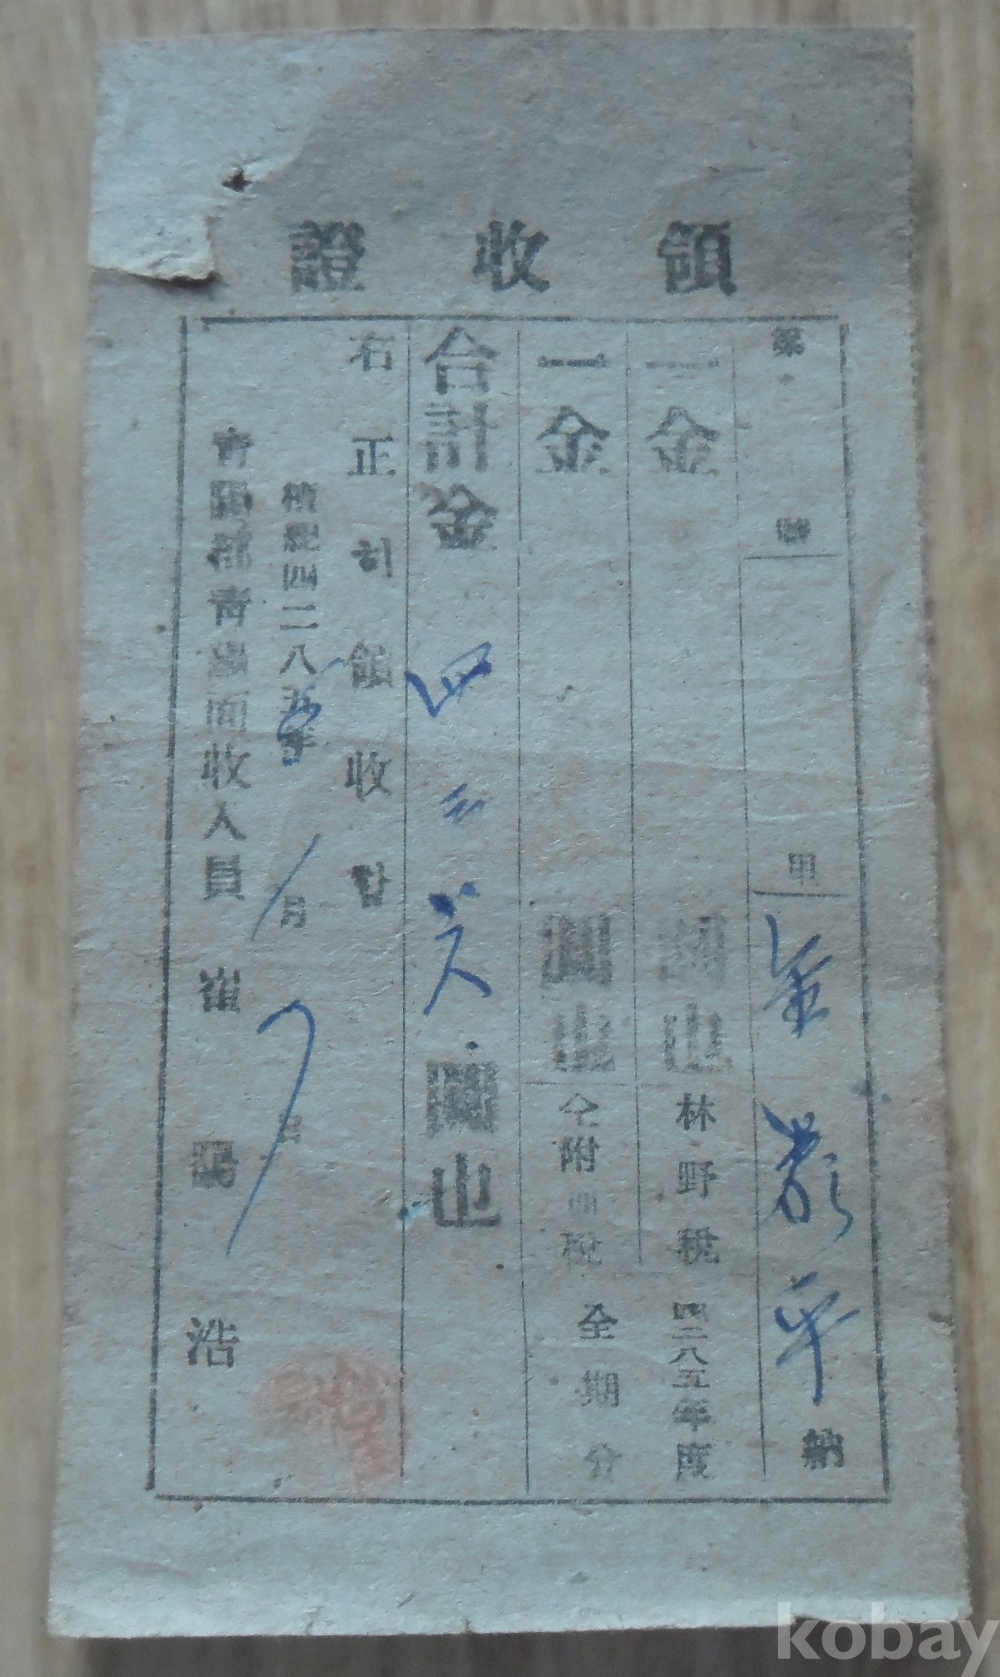 領收證
第 號 甲 金 平 納
一金 圓也 林野稅 四二八五年度
一金 圓也 仝附加稅 全期分
合計金 四二 圓也
右正히領收함
檀紀四二八五年 月 日
青陽面收入員 崔 浩
kobay